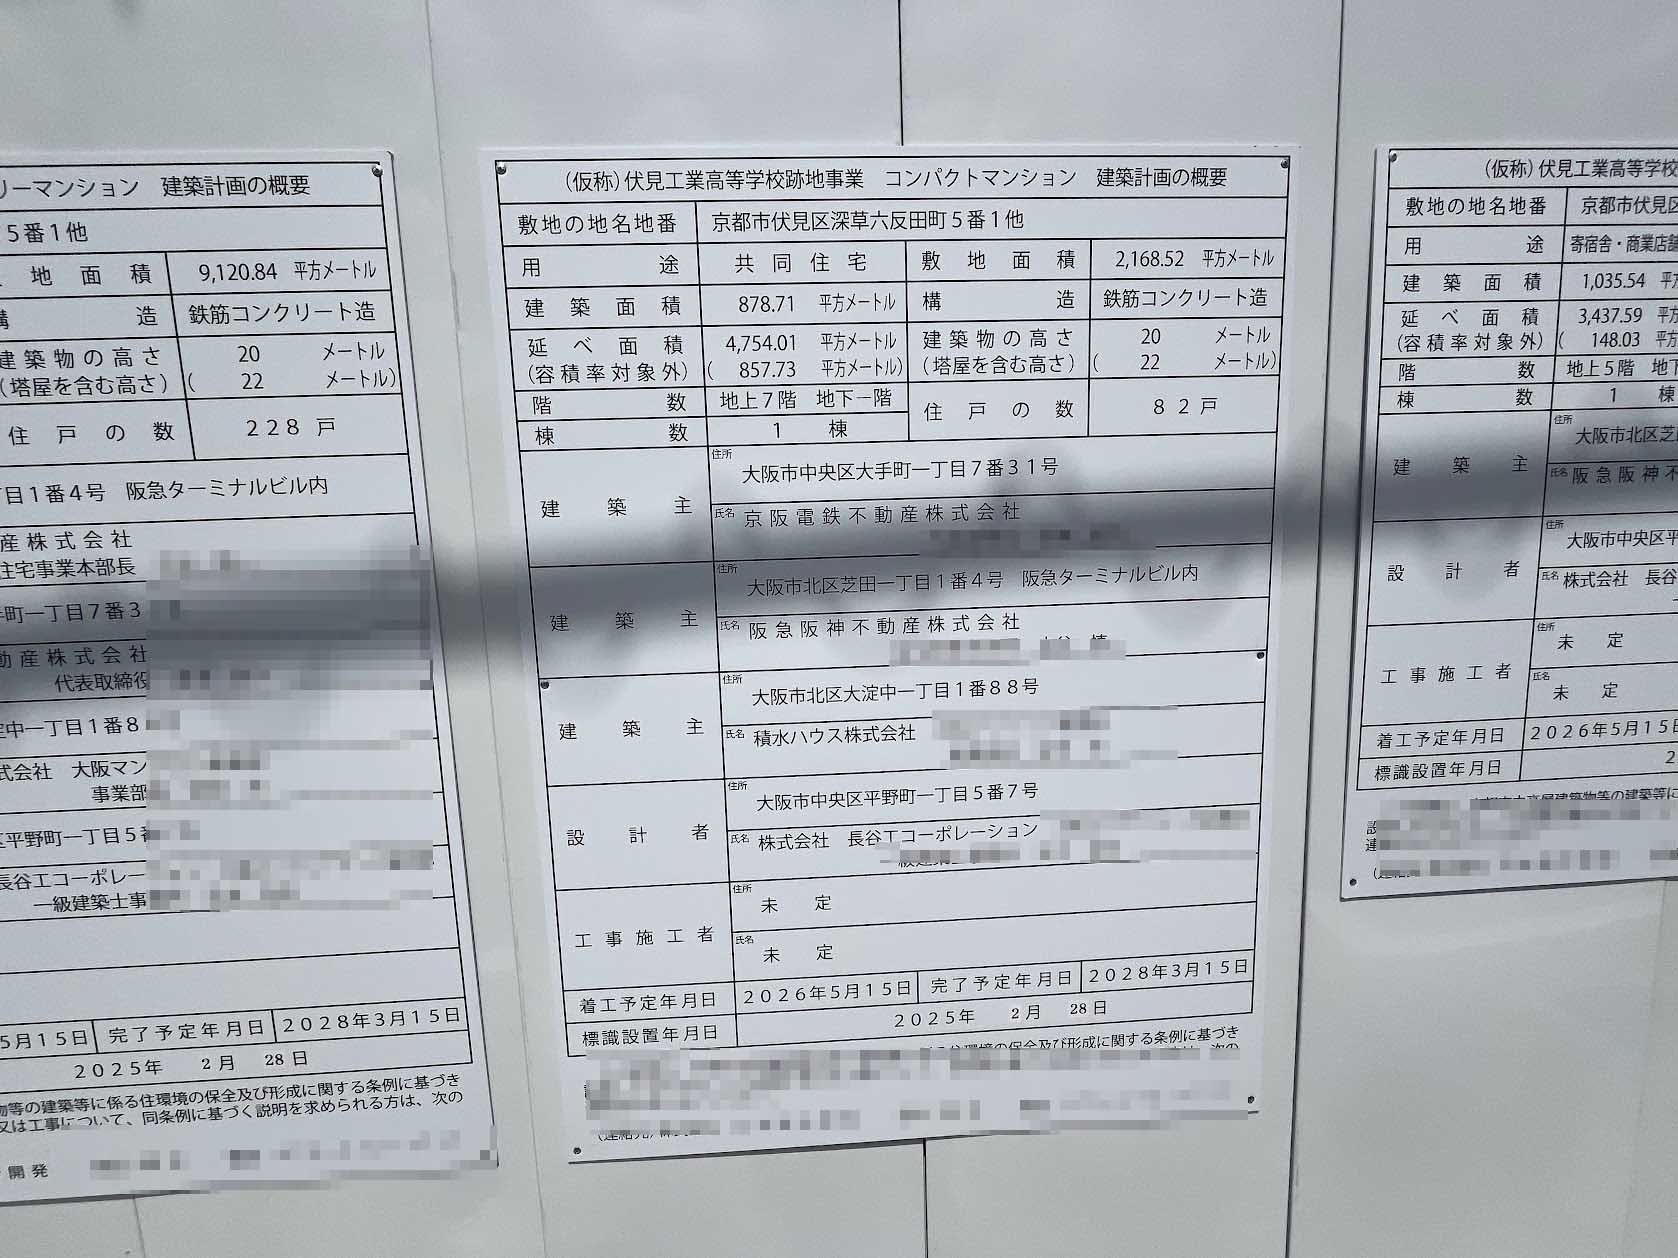 リーマンション 建築計画の概要
５番１他
地面積 9,120.84 平方メートル
構造 鉄筋コンクリート造
建築物の高さ 20 メートル
(塔屋を含む高さ) ( 22 メートル)
住戸の数 ２２８戸
目１番４号 阪急ターミナルビル内
産株式会社
住宅事業本部長
手町一丁目７番３
動産株式会社
代表取締役
淀中一丁目１番８
式会社 大阪マン
事業部
区平野町一丁目５番
長谷工コーポレー
一級建築士事
５月１５日 完了予定年月日 ２０２８年３月１５日
２０２５年 2月 28日
物等の建築等に係る住環境の保全及び形成に関する条例に基づき
又は工事について、同条例に基づく説明を求められる方は、次の
開発
(仮称)伏見工業高等学校跡地事業 コンパクトマンション 建築計画の概要
敷地の地名地番 京都市伏見区深草六反田町５番１他
用途 共同住宅 敷地面積 2,168.52 平方メートル
建築面積 878.71 平方メートル 構造 鉄筋コンクリート造
延べ面積 4,754.01 平方メートル 建築物の高さ 20 メートル
(容積率対象外) ( 857.73 平方メートル) (塔屋を含む高さ) ( 22 メートル)
階数 地上７階 地下一階 住戸の数 ８２戸
棟数 1 棟
建築主 住所 大阪市中央区大手町一丁目７番３１号
氏名 京阪電鉄不動産株式会社
建築主 住所 大阪市北区芝田一丁目１番４号 阪急ターミナルビル内
氏名 阪急阪神不動産株式会社
建築主 住所 大阪市北区大淀中一丁目１番８８号
氏名 積水ハウス株式会社
設計者 住所 大阪市中央区平野町一丁目５番７号
氏名 株式会社 長谷工コーポレーション
工事施工者 住所 未定
氏名 未定
着工予定年月日 ２０２６年５月１５日 完了予定年月日 ２０２８年３月１５日
標識設置年月日 ２０２５年 2月 28日
住環境の保全及び形成に関する条例に基づき
次の
(仮称)伏見工業高等学校
敷地の地名地番 京都市伏見区
用途 寄宿舎・商業店舗
建築面積 1,035.54 平方
延べ面積 3,437.59 平方
(容積率対象外) ( 148.03 平方
階数 地上５階 地下
棟数 1 棟
建築主 住所 大阪市北区芝
氏名 阪急阪神不
設計者 住所 大阪市中央区平
氏名 株式会社 長谷
工事施工者 住所 未定
氏名 未定
着工予定年月日 ２０２６年５月１５日
標識設置年月日 2